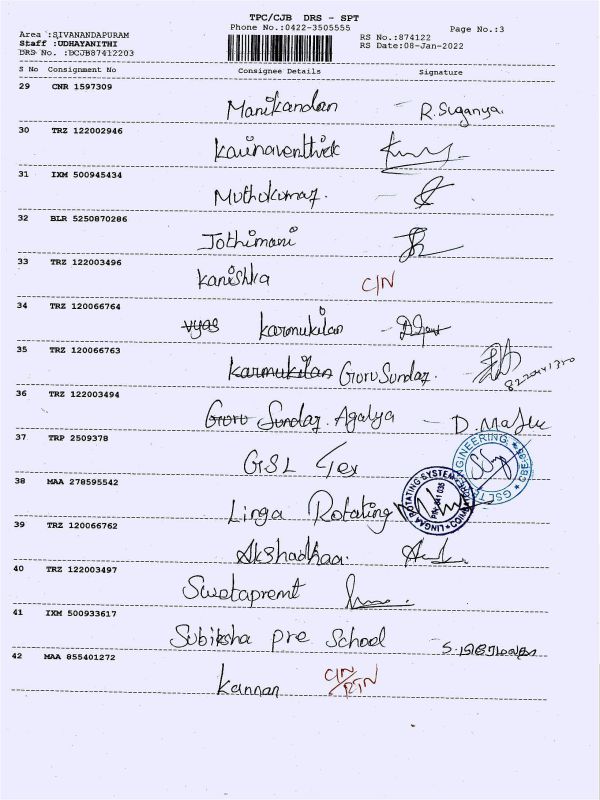 TPC/CJB DRS - SPT
Phone No.:0422-3505555
Page No.:3
Area :SIVANANDAPURAM
Staff :UDHAYANITHI
DRS No. :DCJB87412203
RS No.:874122
RS Date:08-Jan-2022
S No Consignment No Consignee Details Signature
29 CNR 1597309
Manikandan - R.Suganya.
30 TRZ 122002946
31 IXM 500945434
Muthukumar.
32 BLR 5250870286
Jothimani
33 TRZ 122003496
Kanishka C/N
34 TRZ 120066764
vyas karmukilan
35 TRZ 120066763
karmukilan Guru Sundar.
36 TRZ 122003494
Guru Sundar. Agalya -
37 TRP 2509378
GSL Tex
38 MAA 278595542
Linga Rotating
LINGAA ROTATING SYSTEM
39 TRZ 120066762
Akshadhaa.
40 TRZ 122003497
Swetapremt
41 IXM 500933617
Subiksha pre School
42 MAA 855401272
Kannan C/N RTN